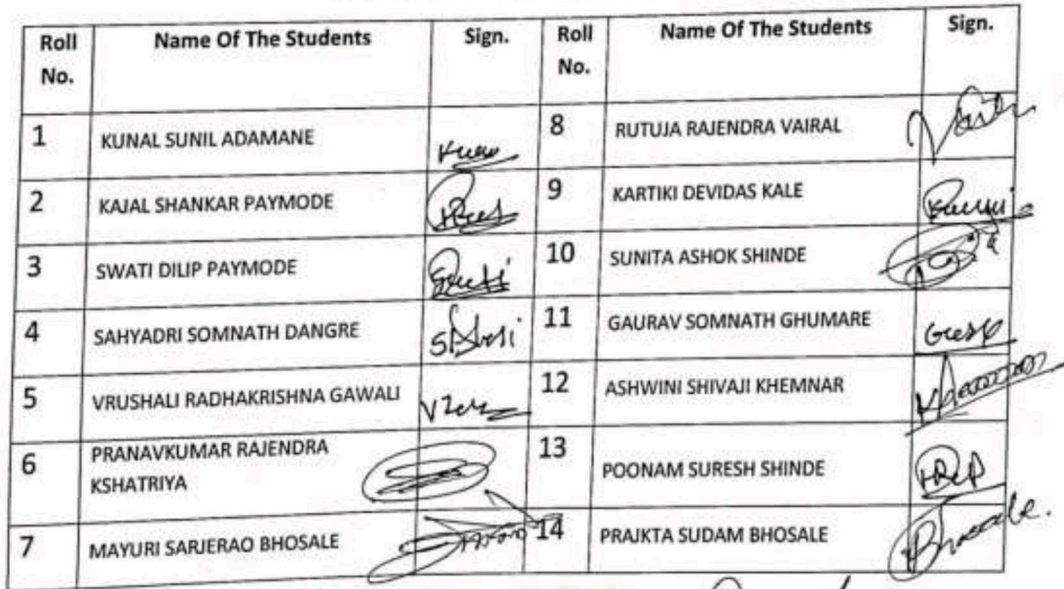 Roll No. Name Of The Students Sign. Roll No. Name Of The Students Sign.
1 KUNAL SUNIL ADAMANE 8 RUTUJA RAJENDRA VAIRAL
2 KAJAL SHANKAR PAYMODE 9 KARTIKI DEVIDAS KALE
3 SWATI DILIP PAYMODE 10 SUNITA ASHOK SHINDE
4 SAHYADRI SOMNATH DANGRE 11 GAURAV SOMNATH GHUMARE
5 VRUSHALI RADHAKRISHNA GAWALI 12 ASHWINI SHIVAJI KHEMNAR
6 PRANAVKUMAR RAJENDRA
KSHATRIYA 13 POONAM SURESH SHINDE
7 MAYURI SARJERAO BHOSALE 14 PRAJKTA SUDAM BHOSALE